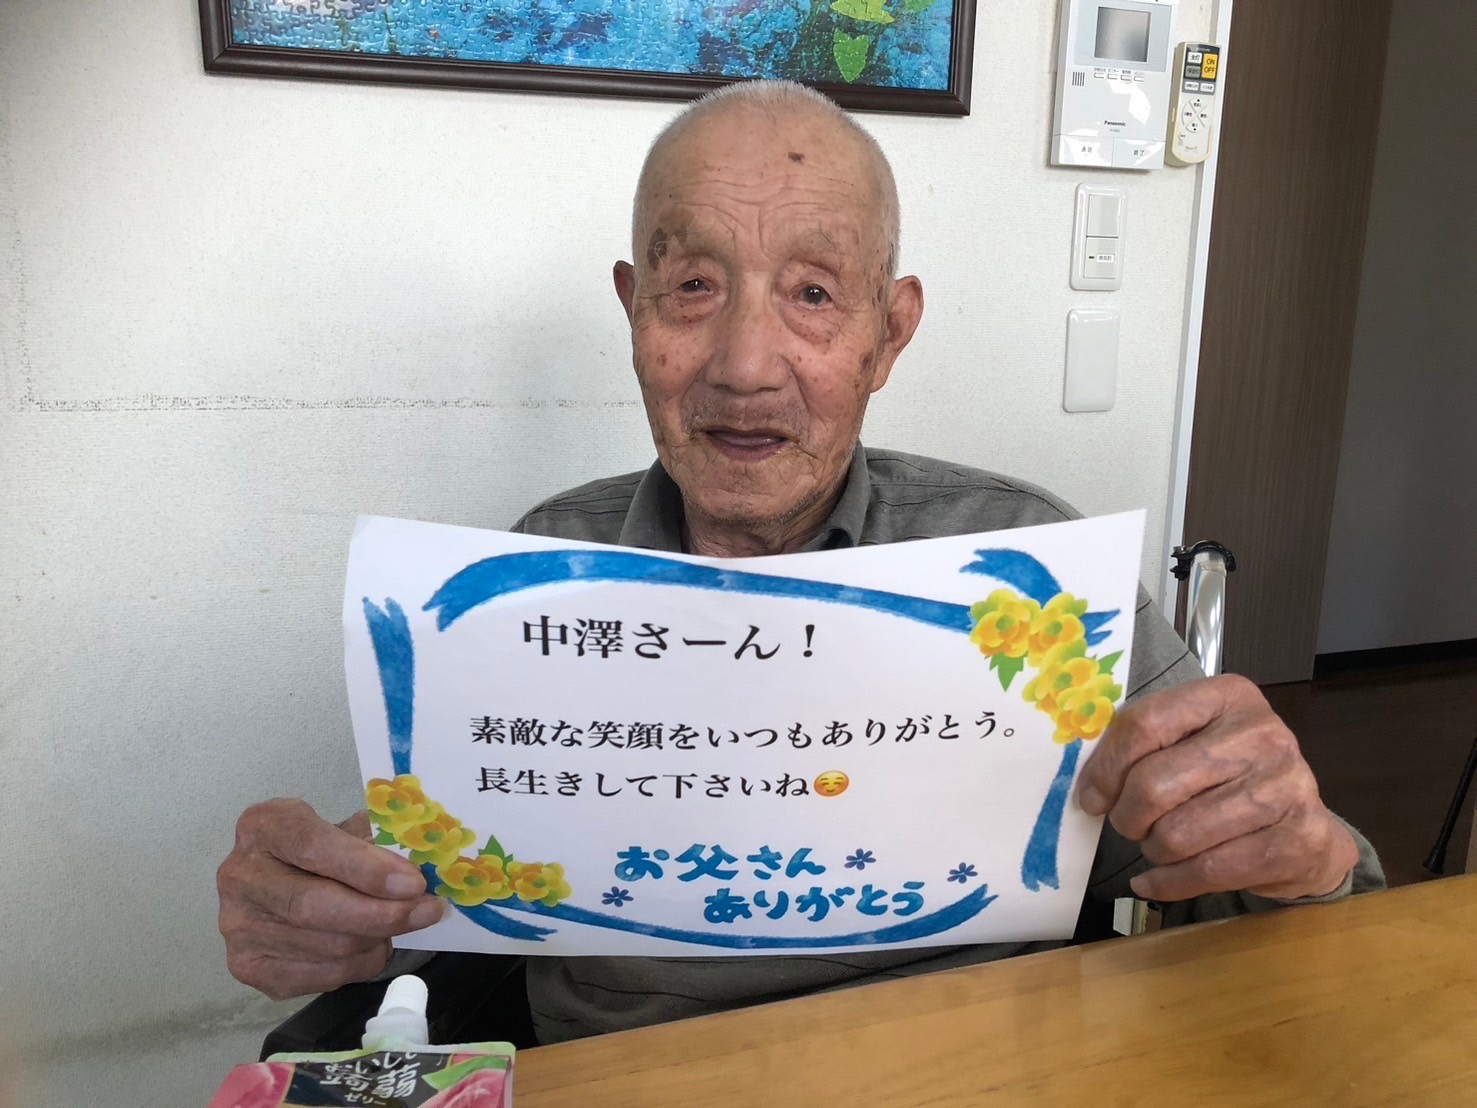 中澤さーん！
素敵な笑顔をいつもありがとう。
長生きして下さいね☺️
お父さん
ありがとう
Panasonic
通話
終了
全灯
ON
OFF
おいしい
蒟蒻
ゼリー